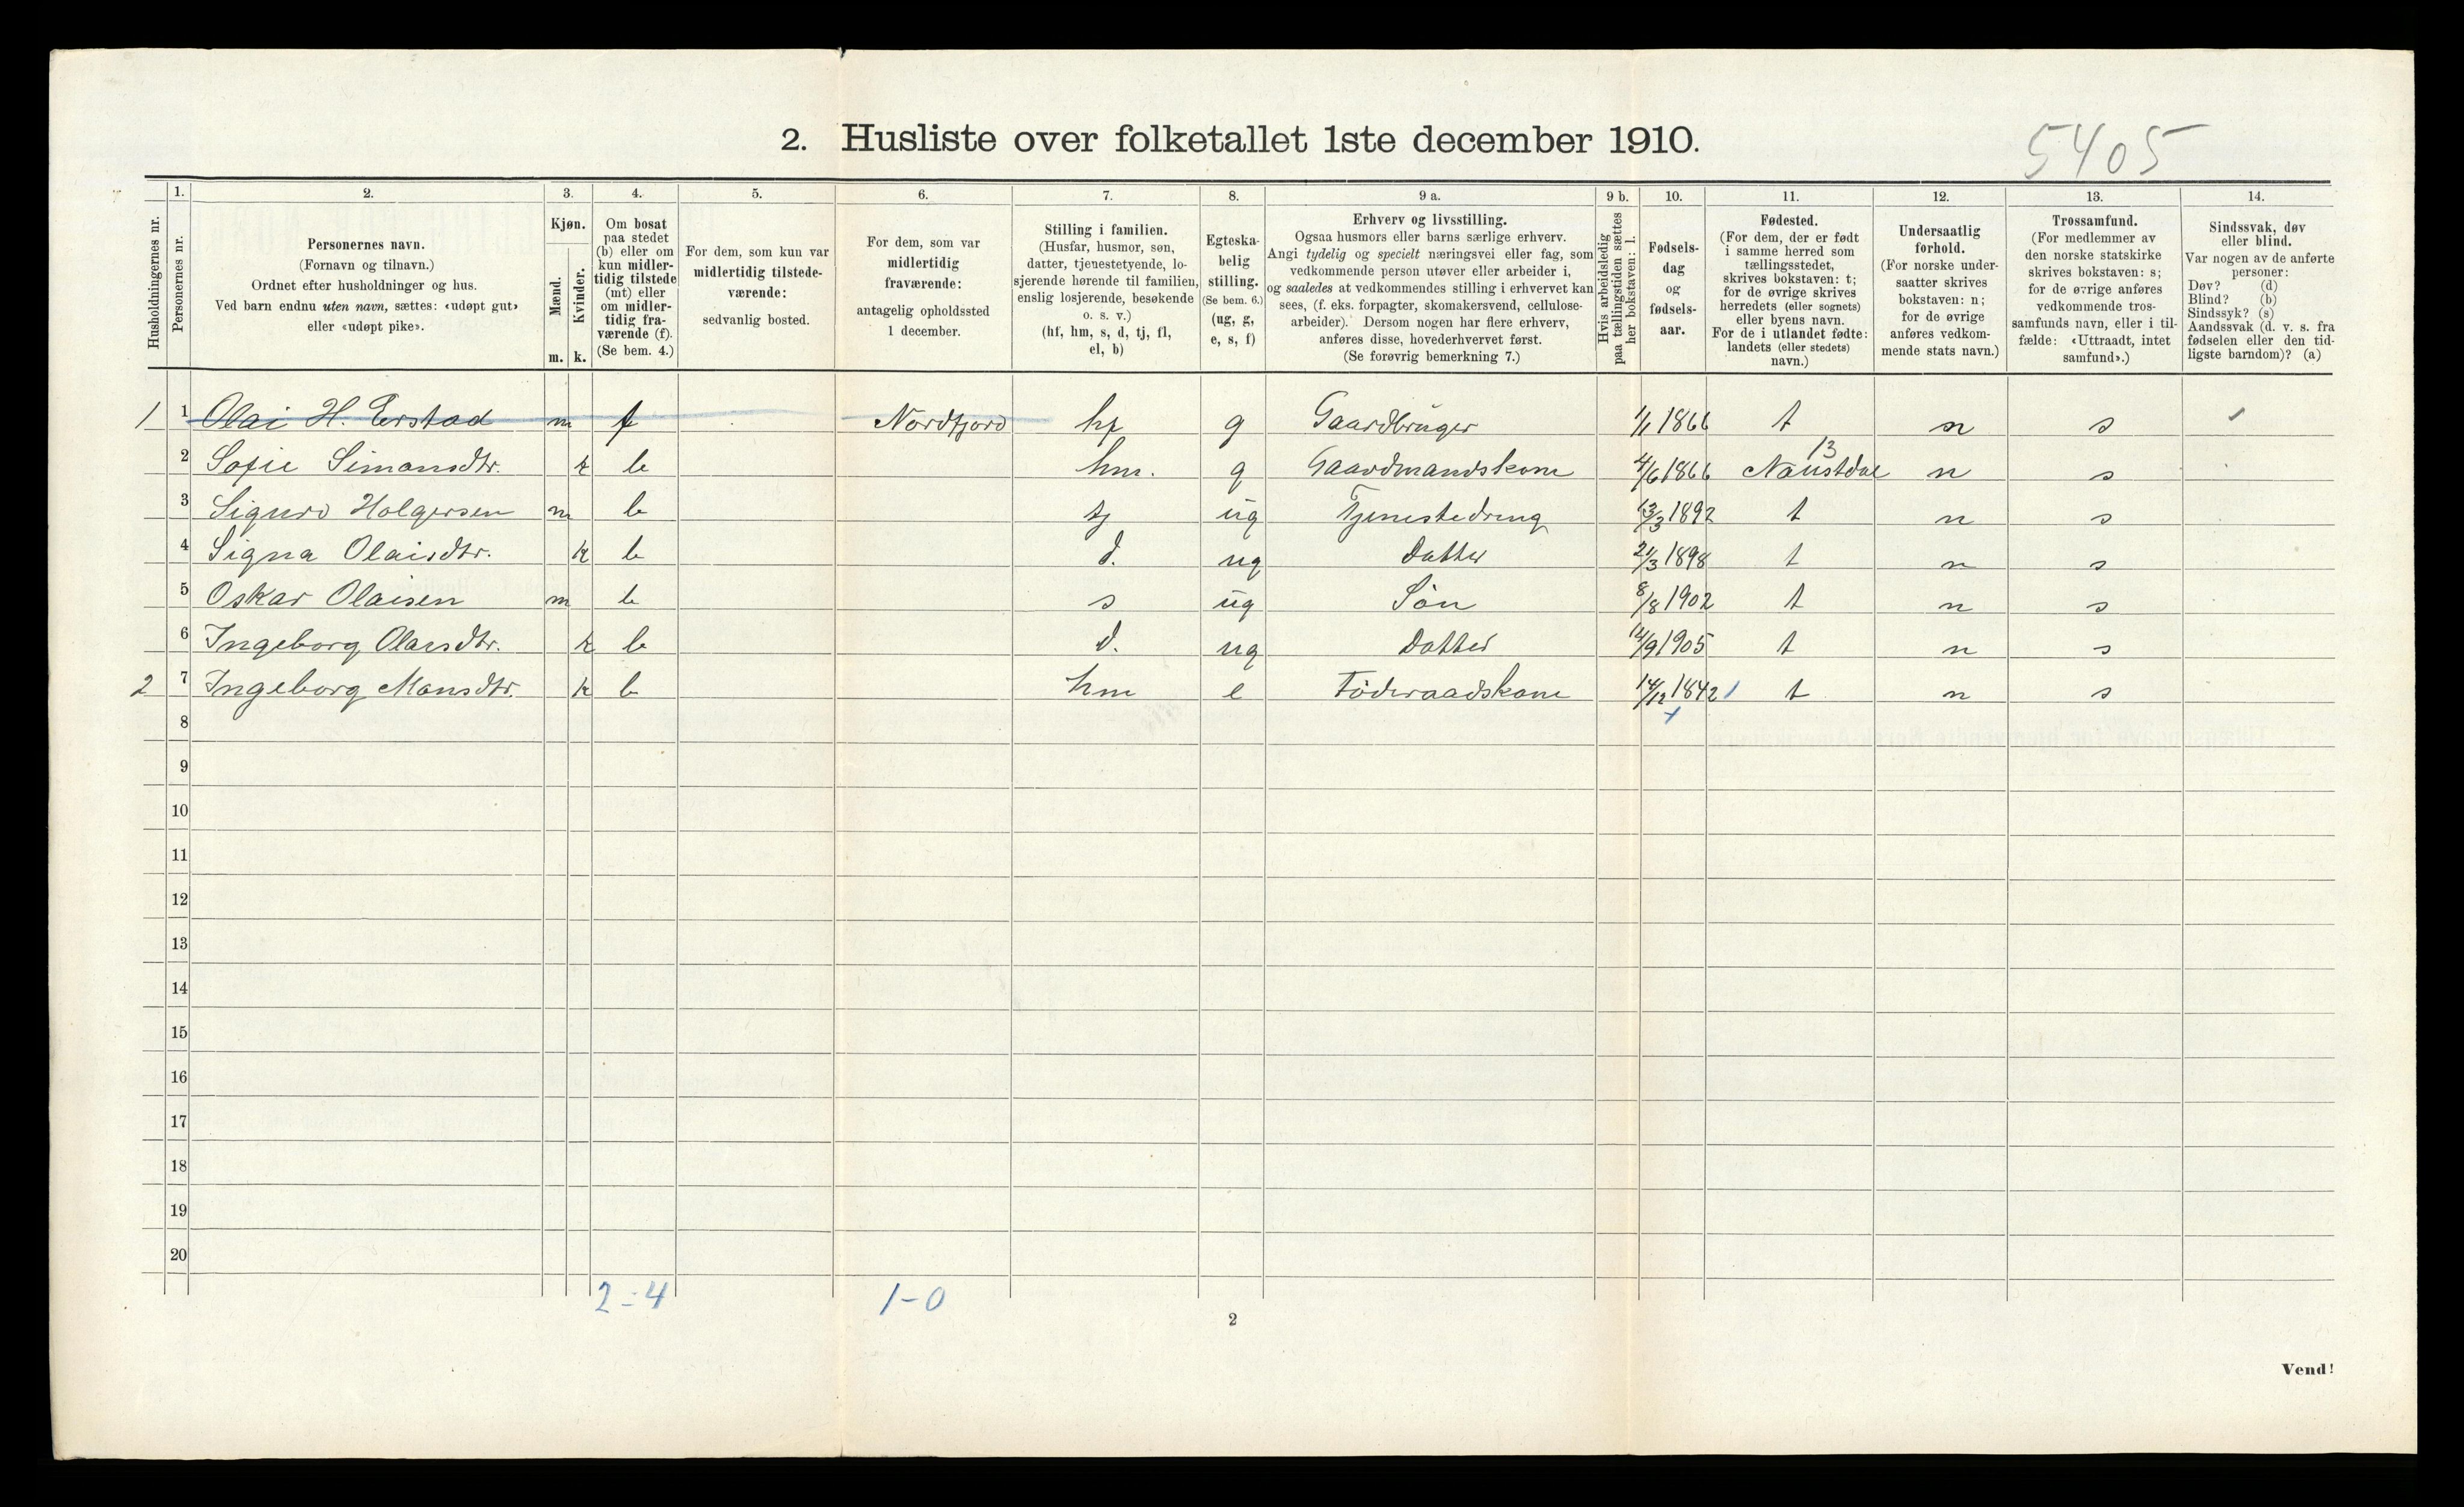 2. Husliste over folketallet 1ste december 1910.
5405
Husholdningernes nr.
1.
Personernes nr.
2.
Personernes navn.
(Fornavn og tilnavn.)
Ordnet efter husholdninger og hus.
Ved barn endnu uten navn, sættes: «udøpt gut»
eller «udøpt pike».
3.
Kjøn.
Mænd.
Kvinder.
m. k.
4.
Om bosat
paa stedet
(b) eller om
kun midler-
tidig tilstede
(mt) eller
om midler-
tidig fra-
værende (f).
(Se bem. 4.)
5.
For dem, som kun var
midlertidig tilstede-
værende:
sedvanlig bosted.
6.
For dem, som var
midlertidig
fraværende:
antagelig opholdssted
1 december.
7.
Stilling i familien.
(Husfar, husmor, søn,
datter, tjenestetyende, lo-
sjerende hørende til familien,
enslig losjerende, besøkende
o. s. v.)
(hf, hm, s, d, tj, fl,
el, b)
8.
Egteska-
belig
stilling.
(Se bem. 6.)
(ug, g,
e, s, f)
9 a.
Erhverv og livsstilling.
Ogsaa husmors eller barns særlige erhverv.
Angi tydelig og specielt næringsvei eller fag, som
vedkommende person utøver eller arbeider i,
og saaledes at vedkommendes stilling i erhvervet kan
sees, (f. eks. forpagter, skomakersvend, cellulose-
arbeider). Dersom nogen har flere erhverv,
anføres disse, hovederhvervet først.
(Se forøvrig bemerkning 7.)
9 b.
Hvis arbeidsledig
paa tællingstiden sættes
her bokstaven: l.
10.
Fødsels-
dag
og
fødsels-
aar.
11.
Fødested.
(For dem, der er født
i samme herred som
tællingsstedet,
skrives bokstaven: t;
for de øvrige skrives
herredets (eller sognets)
eller byens navn.
For de i utlandet fødte:
landets (eller stedets)
navn.)
12.
Undersaatlig
forhold.
(For norske under-
saatter skrives
bokstaven: n;
for de øvrige
anføres vedkom-
mende stats navn.)
13.
Trossamfund.
(For medlemmer av
den norske statskirke
skrives bokstaven: s;
for de øvrige anføres
vedkommende tros-
samfunds navn, eller i til-
fælde: «Uttraadt, intet
samfund».)
14.
Sindssvak, døv
eller blind.
Var nogen av de anførte
personer:
Døv? (d)
Blind? (b)
Sindssyk? (s)
Aandssvak (d. v. s. fra
fødselen eller den tid-
ligste barndom)? (a)
1 1 Olai H. Erstad m f Nordfjord hf g Gaardbruger 1/1 1866 t n s
13
2 Sofie Simonsdtr. k b hm. g Gaardmandskone 4/6 1866 Naustdal n s
3 Sigurd Holgersen m b tj ug Tjenestedreng 13/3 1892 t n s
4 Signa Olaisdtr. k b d. ug Datter 21/3 1898 t n s
5 Oskar Olaisen m b s ug Søn 8/8 1902 t n s
6 Ingeborg Olaisdtr. k b d. ug Datter 14/9 1905 t n s
2 7 Ingeborg Monsdtr. k b hm e Føderaadskone 14/12 1842 t n s
8
9
10
11
12
13
14
15
16
17
18
19
20
2 - 4 1 - 0
2
Vend!